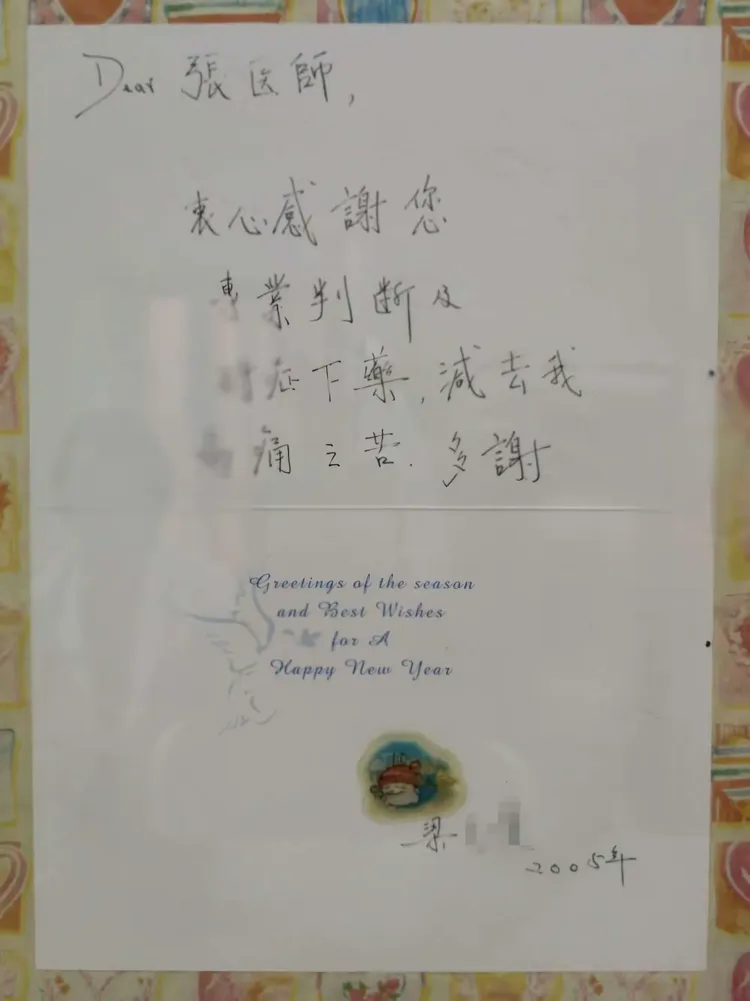 Dear 張医師,
衷心感謝您
專業判断及
症下藥,減去我
痛之苦.多謝
Greetings of the season
and Best Wishes
for A
Happy New Year
梁
2005年